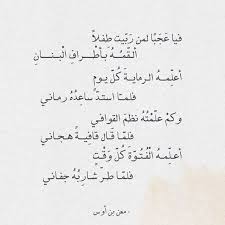 فيا عَجَبًا لمن رَبَّيت طِفلاً
أُلقّمُهُ بأطْرافِ الْبَنَانِ
أعلّمهُ الرمايةَ كُلّ يومٍ
فلمّا استدّ ساعِدُهُ رماني
وكمْ علّمْتُهُ نظمَ القوافي
فلمّا قال قافيةً هجاني
أعلّمهُ الْفُتُوّةَ كُلّ وقْتٍ
فلمّا طرّ شاربُهُ جفاني
معن بن أوس.